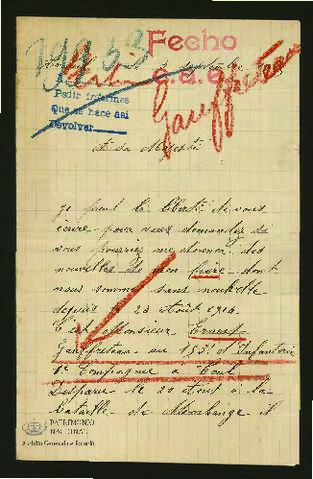 19253
Fecho
c.d.e.
septembre
Jeuffreteau
Pedir informes
Que se hace así
Devolver
A sa Majesté
Je prend la liberté de vous
écrire pour vous demander si
vous pourriez me donner des
nouvelles de mon frère dont
nous sommes sans nouvelle
depuis le 20 Août 1914.
C'est Monsieur Ernest
au 153e d'Infanterie
1e Compagnie a Toul
Disparu le 20 Août a la
bataille de Morhange il
PATRIMONIO
NACIONAL
Archivo General de Palacio